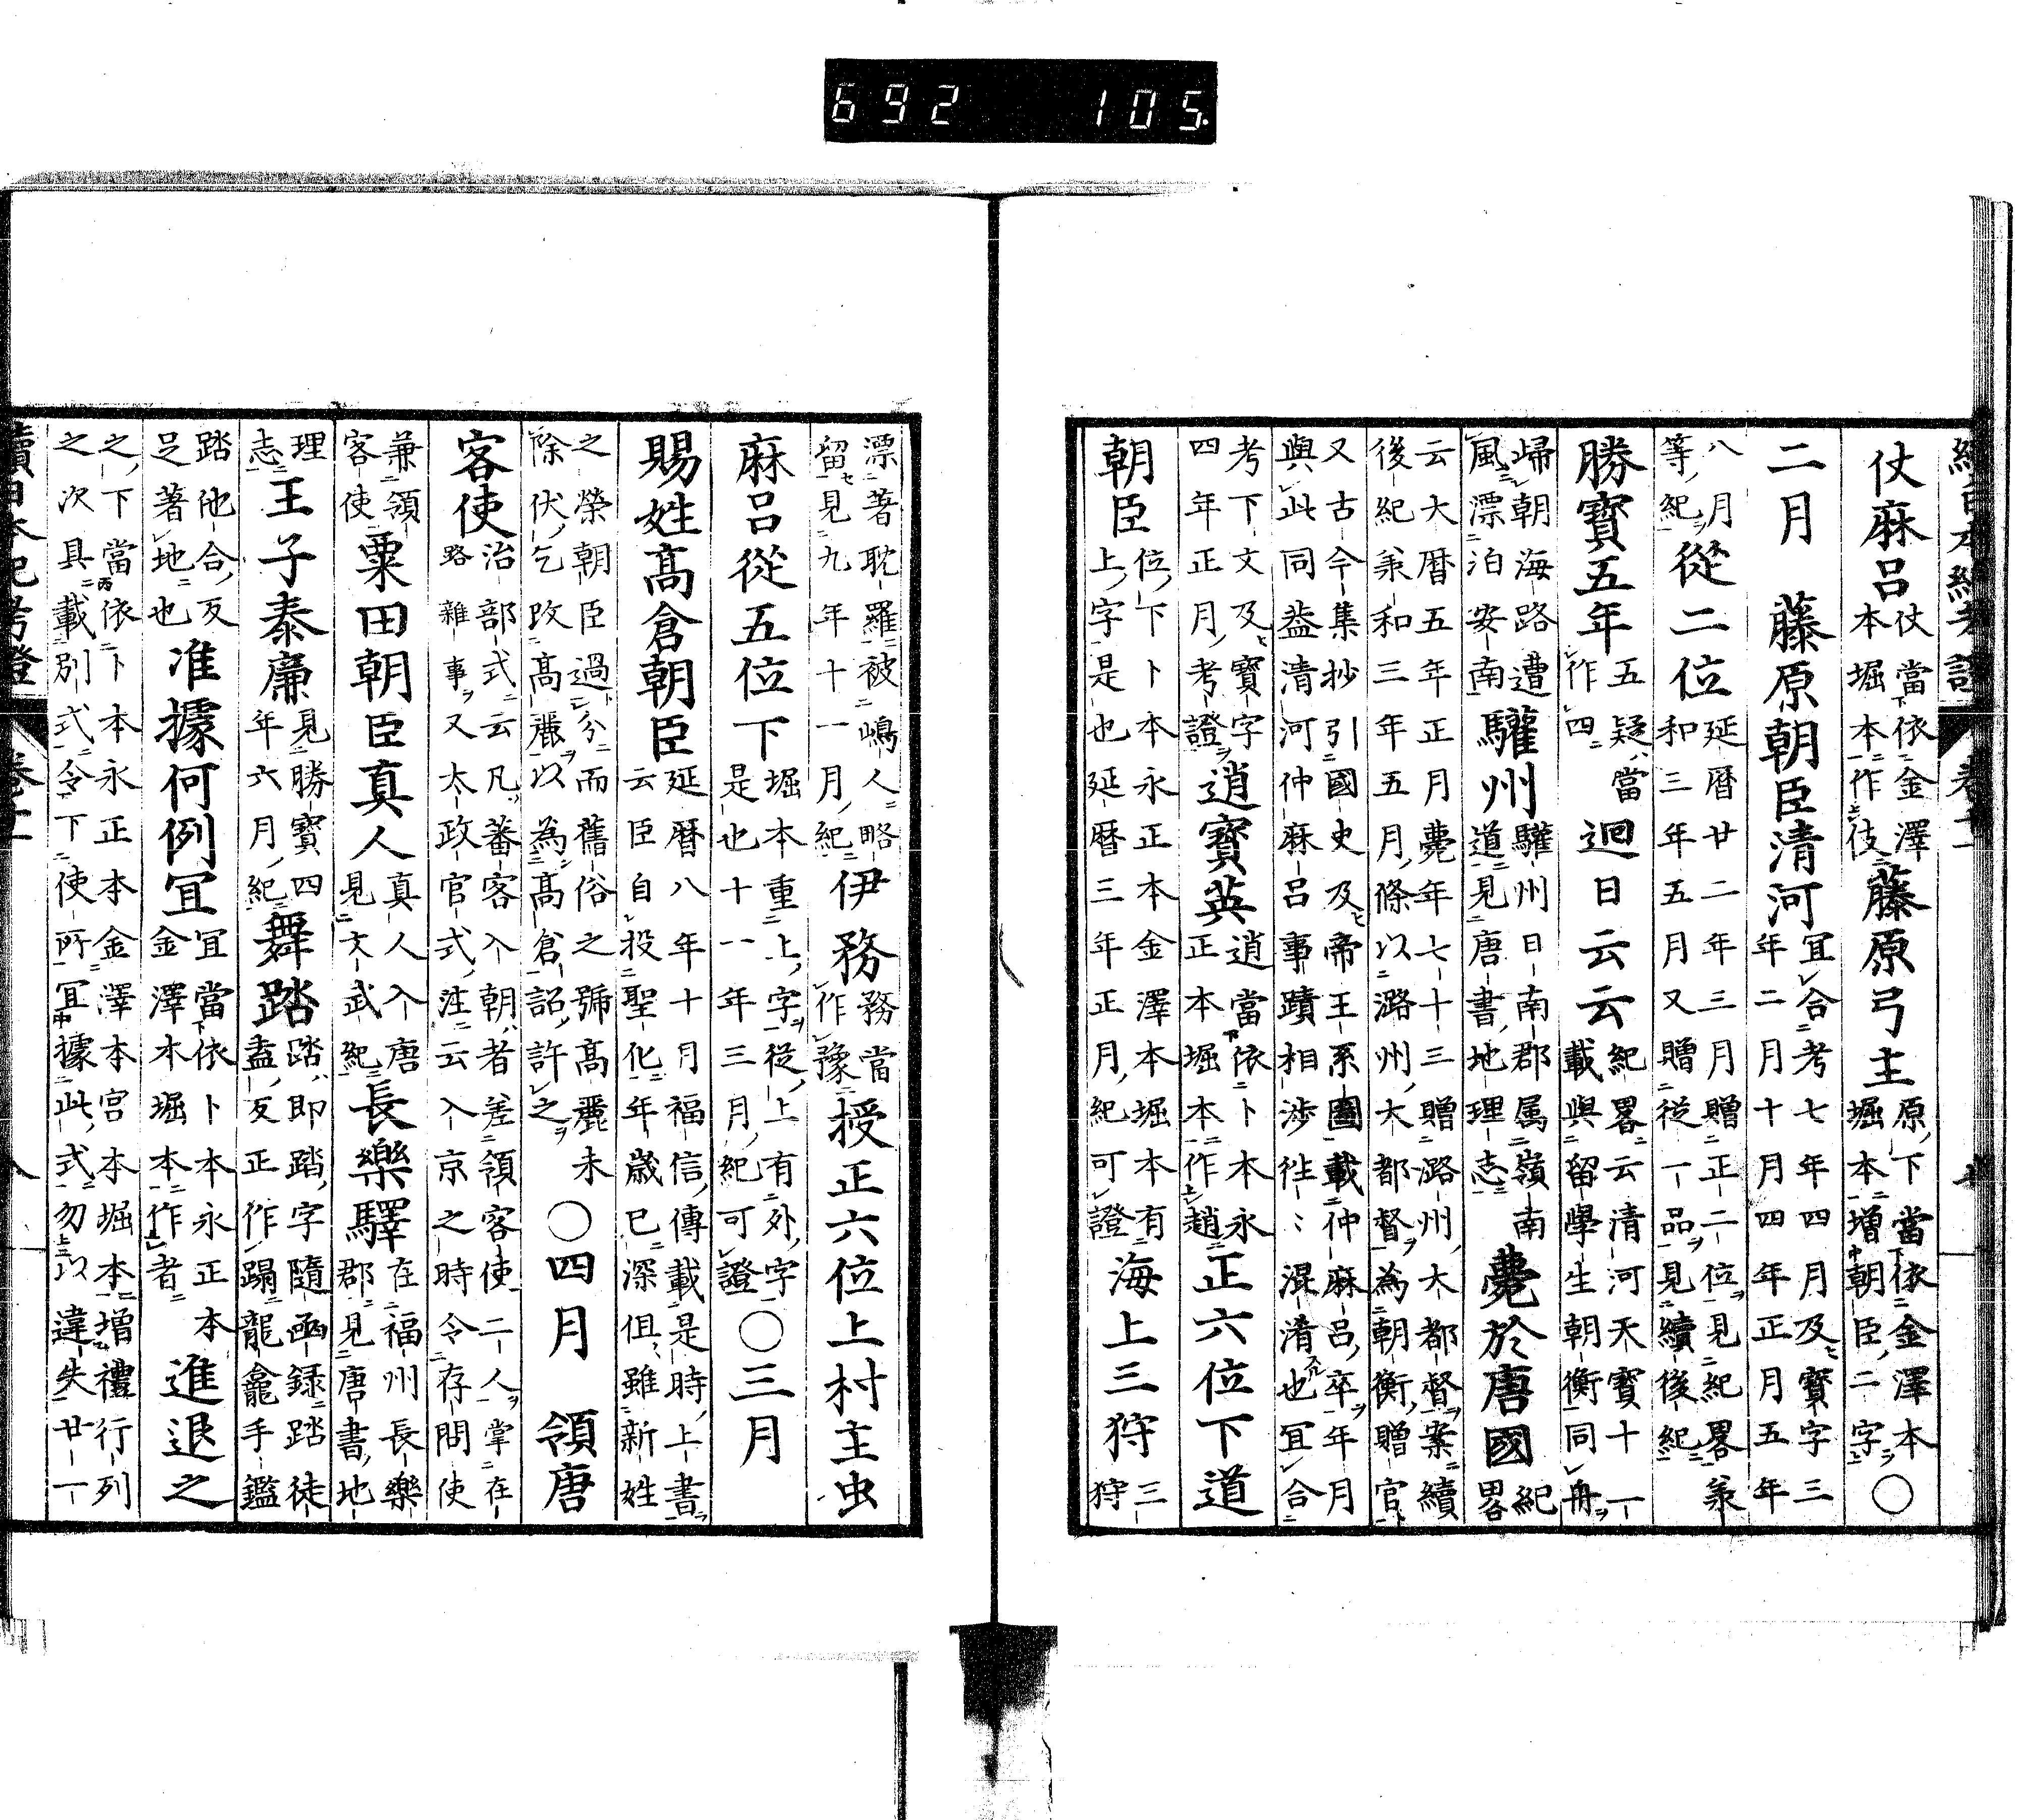 692 105
仗麻呂仗當依金澤本堀本作伎藤原弓主原下當依金澤本堀本増朝臣二字〇
二月 藤原朝臣清河宜合考七年四月及寳字三年二月十月四年正月五年
八月等紀從二位延暦廿二年三月贈正二位見紀畧兼和三年五月又贈從一品見續後紀
勝寳五年五疑當作四迴日云云紀畧云清河天寳十一載與留學生朝衡同舟
歸朝海路遭風漂泊安南驩州驩州日南郡属嶺南道見唐書地理志薨於唐國紀畧
云大暦五年正月薨年七十三贈潞州大都督案續後紀兼和三年五月條以潞州大都督為朝衡贈官
又古今集抄引國史及帝王系圖載仲麻呂卒年月與此同葢清河仲麻呂事蹟相渉往〻混淆也宜合
考下文及寳字四年正月考證逍寳英逍當依卜本永正本堀本作趙正六位下道
朝臣位下卜本永正本金澤本堀本有上字是也延暦三年正月紀可證海上三狩三狩
漂著耽羅被嶋人略留見九年十一月紀伊務務當作豫授正六位上村主虫
麻呂從五位下堀本重上字從上有外字是也十一年三月紀可證〇三月
賜姓髙倉朝臣延暦八年十月福信傳載是時上書云臣自投聖化年歳已深但雖新姓
之榮朝臣過分而舊俗之號髙麗未除伏乞改髙麗以為髙倉詔許之〇四月 領唐
客使治部式云凡蕃客入朝者差領客使二人掌在路雜事又太政官式注云入京之時令存問使
兼領客使粟田朝臣真人真人入唐見文武紀長樂驛在福州長樂郡見唐書地
理志王子泰廉見勝寳四年六月紀舞踏踏即踏字隨函録踏徒盍反正作蹋龍龕手鑑
踏他合反足著地也准據何例冝宜當依卜本永正本金澤本堀本作者進退之
之下當依卜本永正本金澤本宮本堀本増禮行列之次具載別式令下使所宜據此式勿以違失廿一
續日本紀考證 卷十二 八